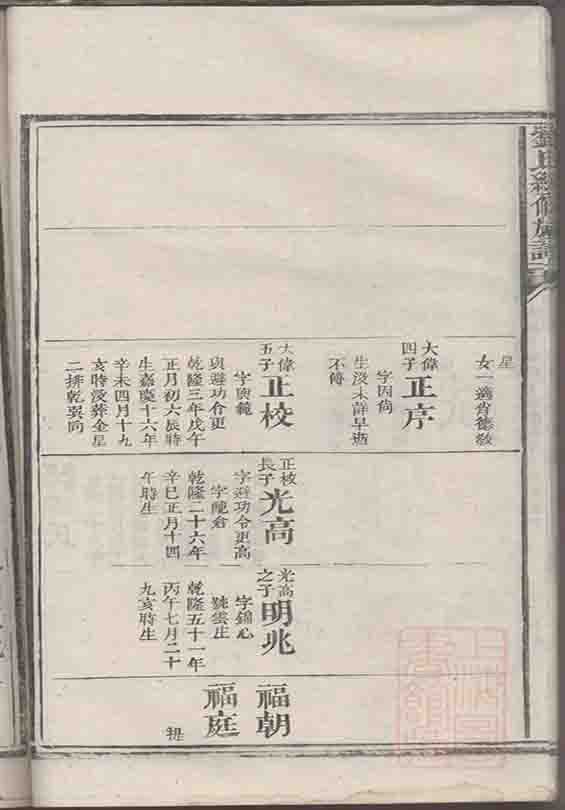 星
女一適肯德敎
大偉
四子
正序
字因倫
生没未詳早逝
不傳
大偉
五子
正校
字興範
與避功令更
乾隆三年戊午
正月初六辰時
生嘉慶十六年
辛未四月十九
亥時没葬金星
二排乾巽向
正校
長子
光高
字避功令更高
字龍倉
乾隆二十六年
辛巳正月十四
午時生
光高
之子
明兆
字錦心
號雲庄
乾隆五十一年
丙午七月二十
九亥時生
福朝
福庭
禔